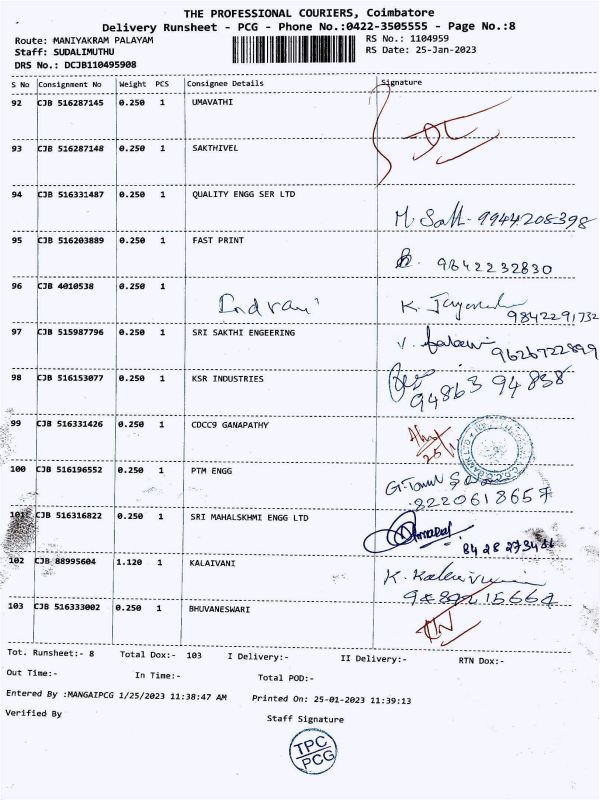 THE PROFESSIONAL COURIERS, Coimbatore
Delivery Runsheet - PCG - Phone No.:0422-3505555 - Page No.:8
Route: MANIYAKRAM PALAYAM RS No.: 1104959
Staff: SUDALIMUTHU RS Date: 25-Jan-2023
DRS No.: DCJB110495908
S No Consignment No Weight PCS Consignee Details Signature
92 CJB 516287145 0.250 1 UMAVATHI
93 CJB 516287148 0.250 1 SAKTHIVEL
94 CJB 516331487 0.250 1 QUALITY ENGG SER LTD
9944208398
95 CJB 516203889 0.250 1 FAST PRINT
9842232830
96 CJB 4010538 0.250 1
Indrani K.
9842291732
97 CJB 515987796 0.250 1 SRI SAKTHI ENGEERING V.
9626722899
98 CJB 516153077 0.250 1 KSR INDUSTRIES
94863 94838
99 CJB 516331426 0.250 1 CDCC9 GANAPATHY
25/1
100 CJB 516196552 0.250 1 PTM ENGG
8220618657
101 CJB 516316822 0.250 1 SRI MAHALSKHMI ENGG LTD
102 CJB 88995604 1.120 1 KALAIVANI
K.
103 CJB 516333002 0.250 1 BHUVANESWARI
Tot. Runsheet:- 8 Total Dox:- 103 I Delivery:- II Delivery:- RTN Dox:-
Out Time:- In Time:- Total POD:-
Entered By :MANGAIPCG 1/25/2023 11:38:47 AM Printed On: 25-01-2023 11:39:13
Verified By Staff Signature
TPC
PCG